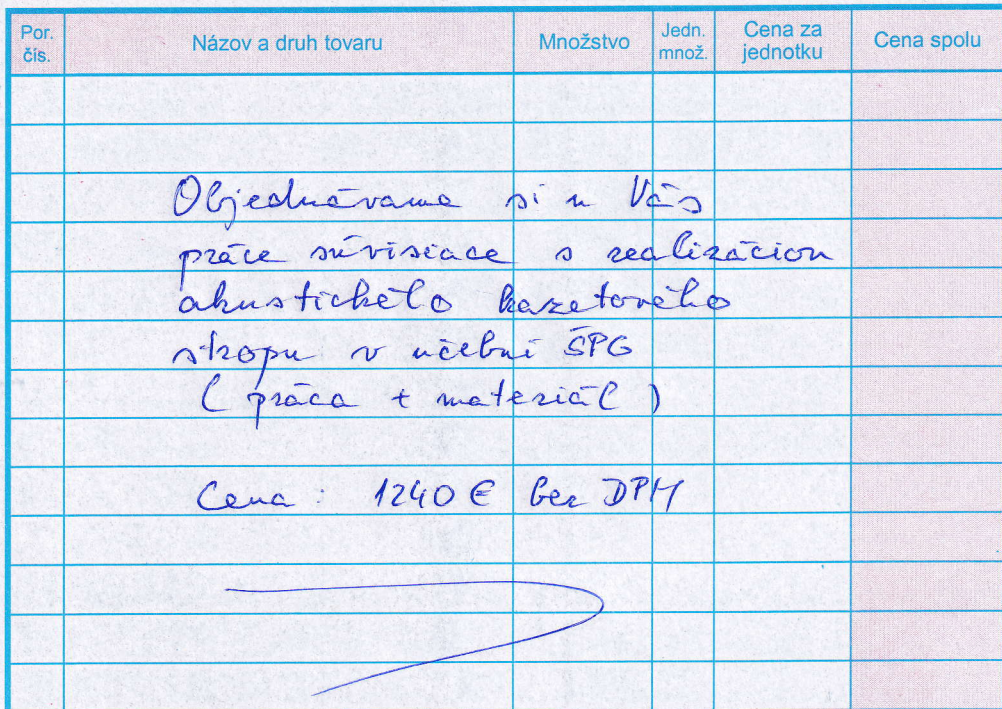 Por. čís.
Názov a druh tovaru
Množstvo
Jedn. množ.
Cena za jednotku
Cena spolu
Objednávame si u Vás
práce súvisiace s realizáciou
akustického kazetového
stropu v učebni ŠPG
( práca + materiál )
Cena : 1240 € bez DPH